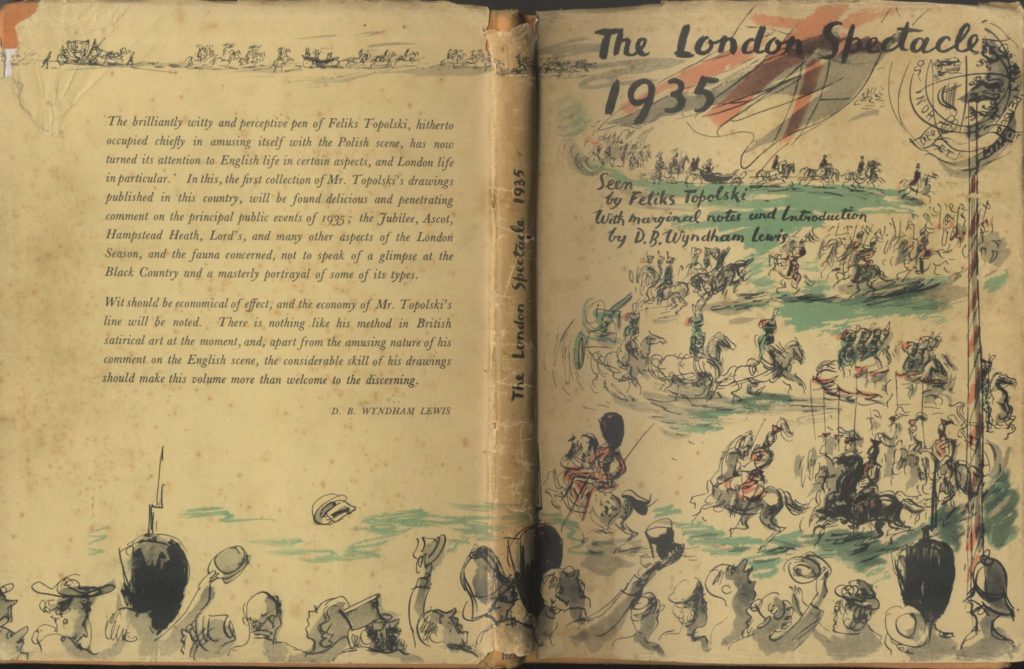 The brilliantly witty and perceptive pen of Feliks Topolski, hitherto
occupied chiefly in amusing itself with the Polish scene, has now
turned its attention to English life in certain aspects, and London life
in particular. In this, the first collection of Mr. Topolski's drawings
published in this country, will be found delicious and penetrating
comment on the principal public events of 1935; the Jubilee, Ascot,
Hampstead Heath, Lord's, and many other aspects of the London
Season, and the fauna concerned, not to speak of a glimpse at the
Black Country and a masterly portrayal of some of its types.
Wit should be economical of effect, and the economy of Mr. Topolski's
line will be noted. There is nothing like his method in British
satirical art at the moment, and, apart from the amusing nature of his
comment on the English scene, the considerable skill of his drawings
should make this volume more than welcome to the discerning.
D. B. WYNDHAM LEWIS
The London Spectacle 1935
The London Spectacle
1935
Seen
by Feliks Topolski
With marginal notes and Introduction
by D. B. Wyndham Lewis